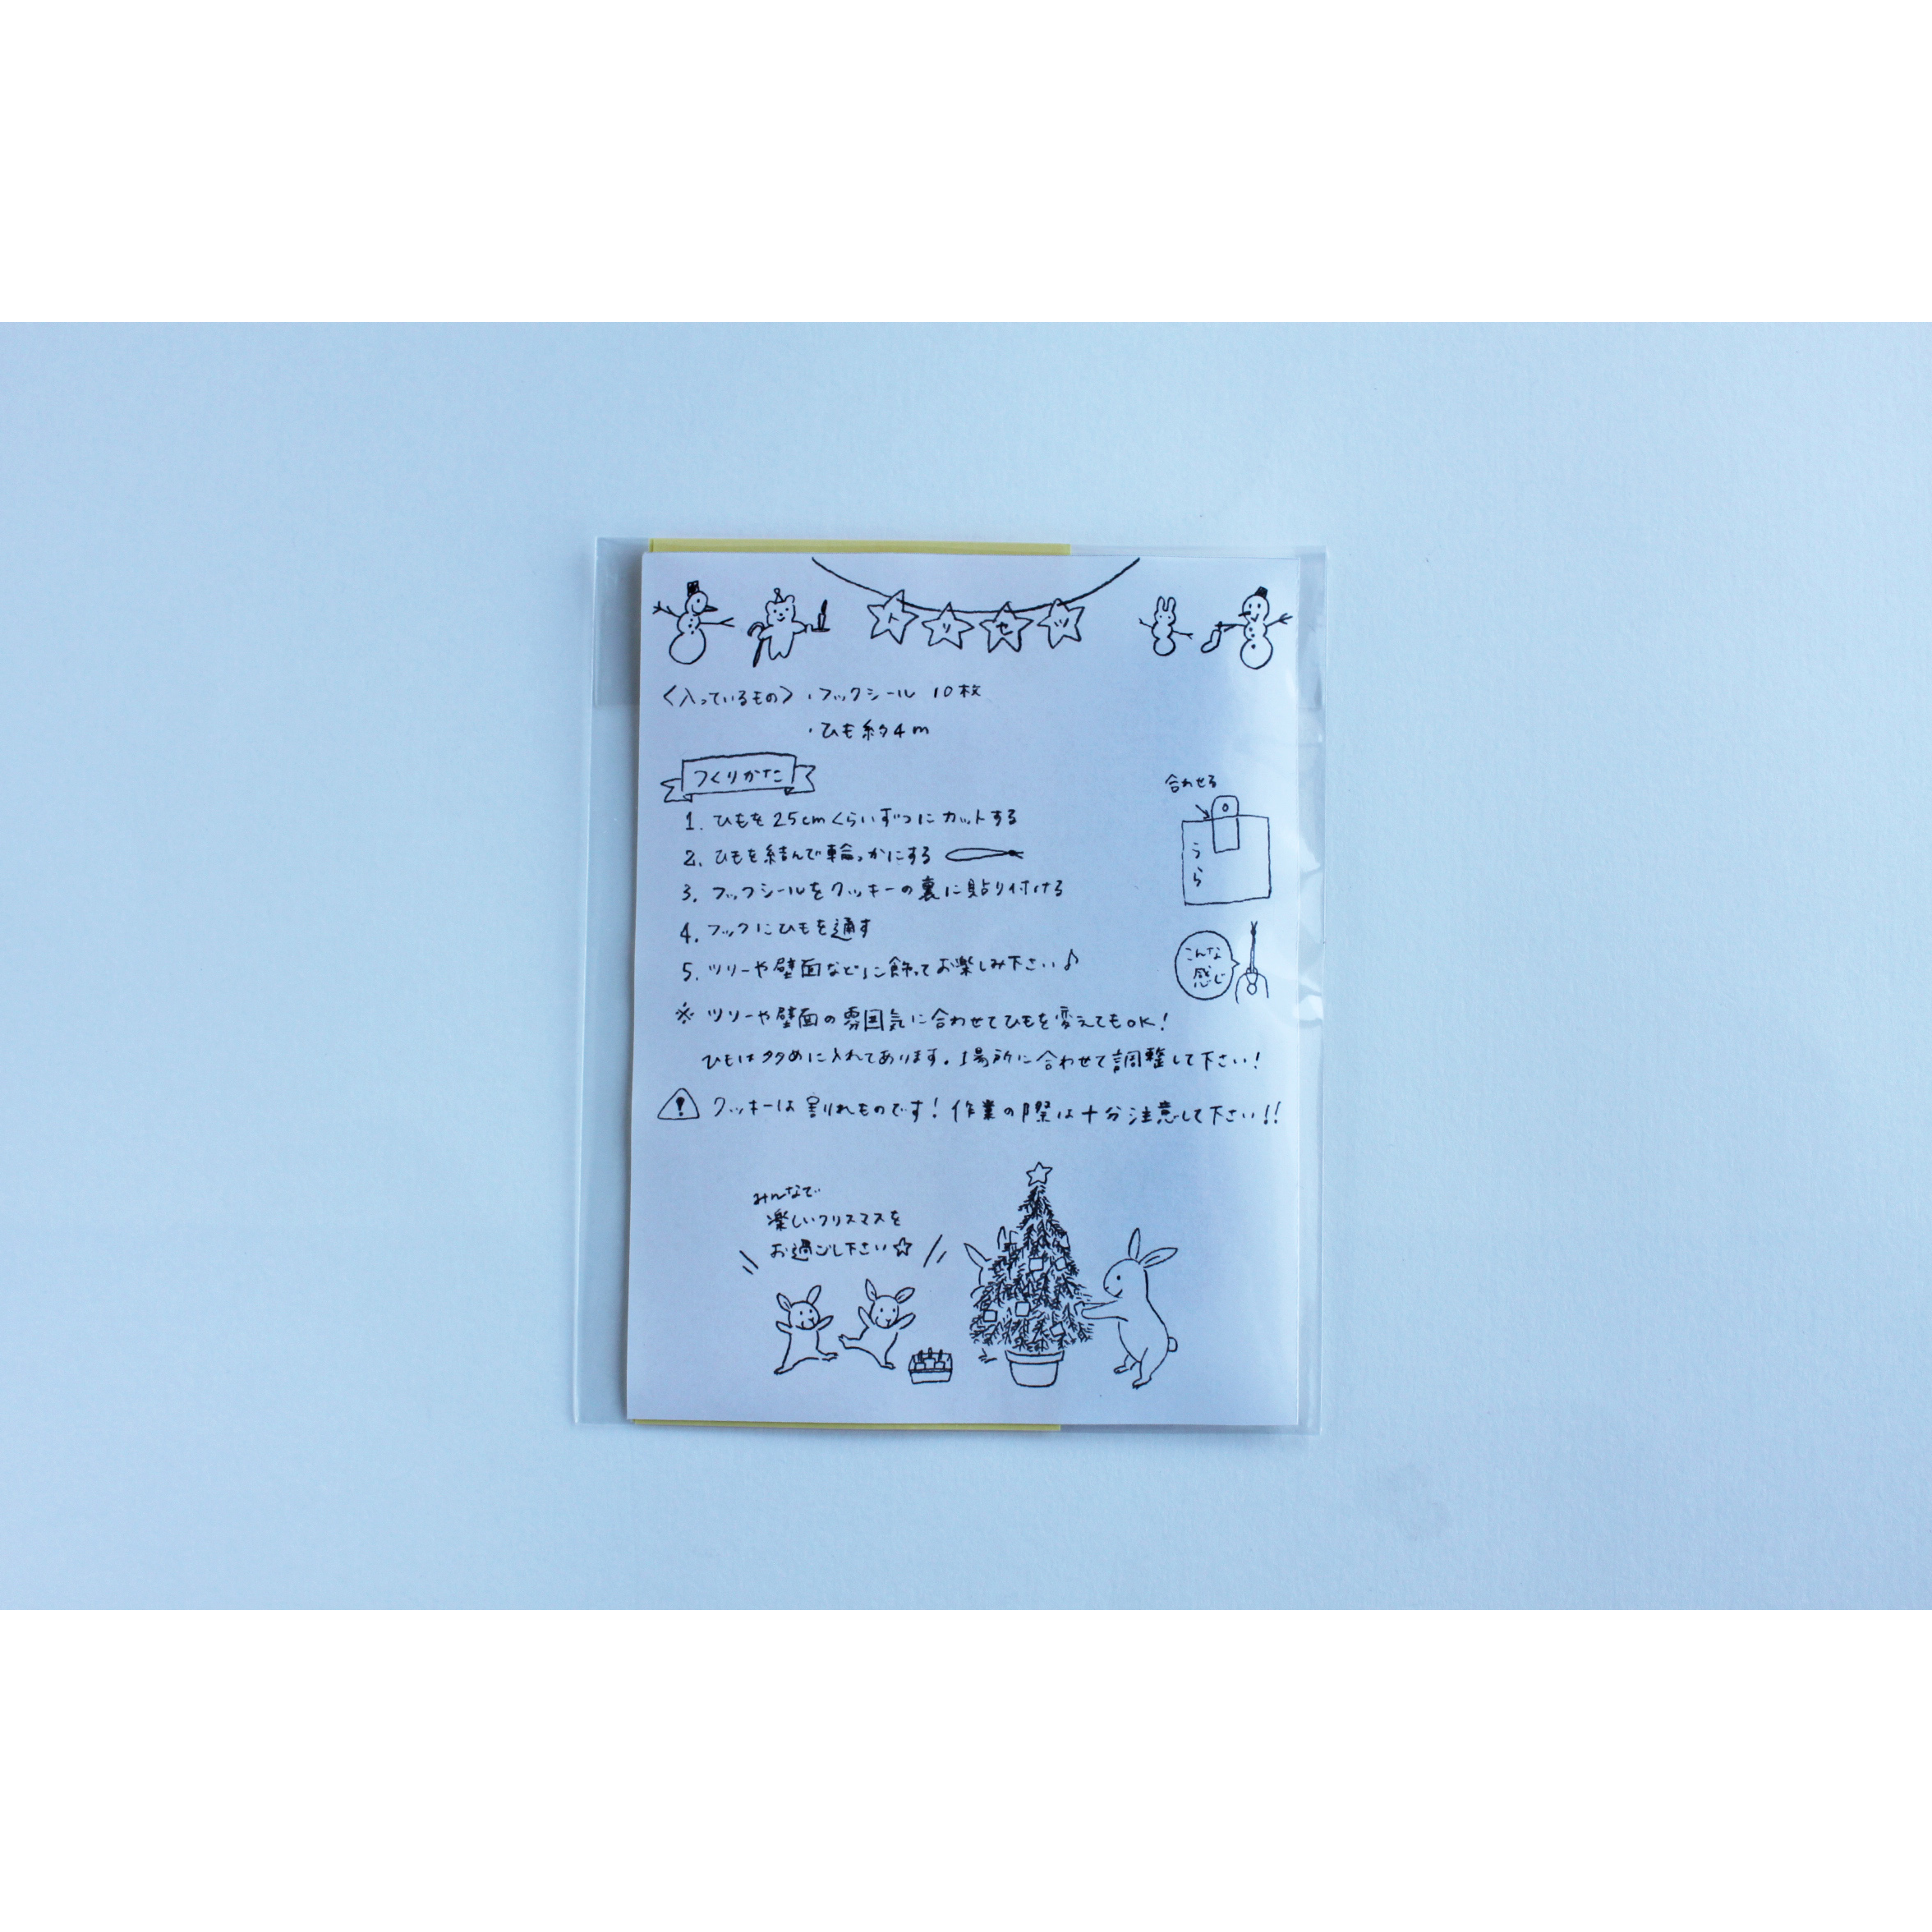 トリセツ
〈入っているもの〉・フックシール 10枚
・ひも約4m
つくりかた
1. ひもを25cmくらいずつにカットする
2. ひもを結んで輪っかにする
3. フックシールをクッキーの裏に貼り付ける
4. フックにひもを通す
5. ツリーや壁面などに飾ってお楽しみ下さい♪
合わせる
うら
こんな
感じ
※ ツリーや壁面の雰囲気に合わせてひもを変えてもOK!
ひもは多めに入れてあります。場所に合わせて調整して下さい!
クッキーは割れものです!作業の際は十分注意して下さい!!
みんなで
楽しいクリスマスを
お過ごし下さい☆